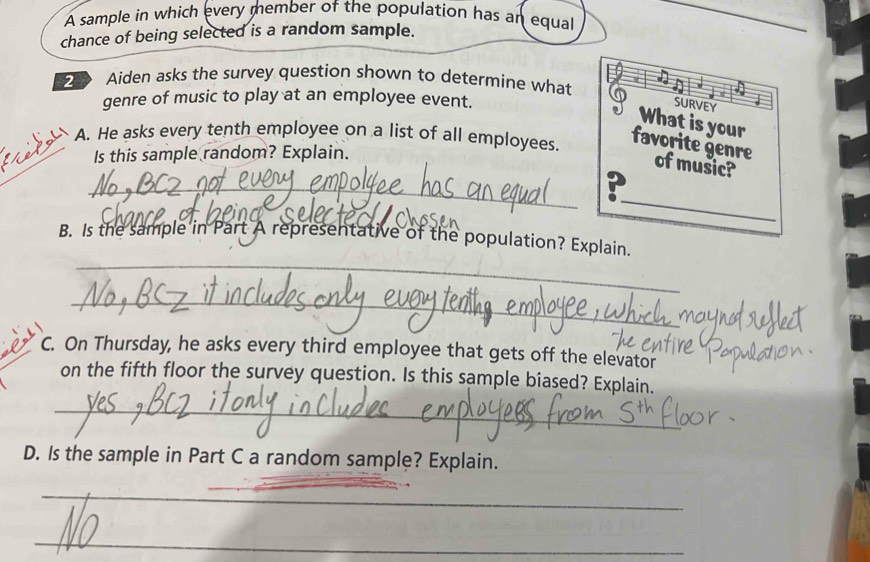 A sample in which every member of the population has an equal
chance of being selected is a random sample.
2 Aiden asks the survey question shown to determine what
genre of music to play at an employee event.
SURVEY
What is your
favorite genre
of music?
?
A. He asks every tenth employee on a list of all employees.
Is this sample random? Explain.
No, BCZ not every empolyee has an equal
chance of being selected / chosen
B. Is the sample in Part A representative of the population? Explain.
No, BCZ it includes only every tenth employee, which may not reflect
the entire Population.
C. On Thursday, he asks every third employee that gets off the elevator
on the fifth floor the survey question. Is this sample biased? Explain.
yes, BCZ it only includes employees from 5th floor.
D. Is the sample in Part C a random sample? Explain.
No